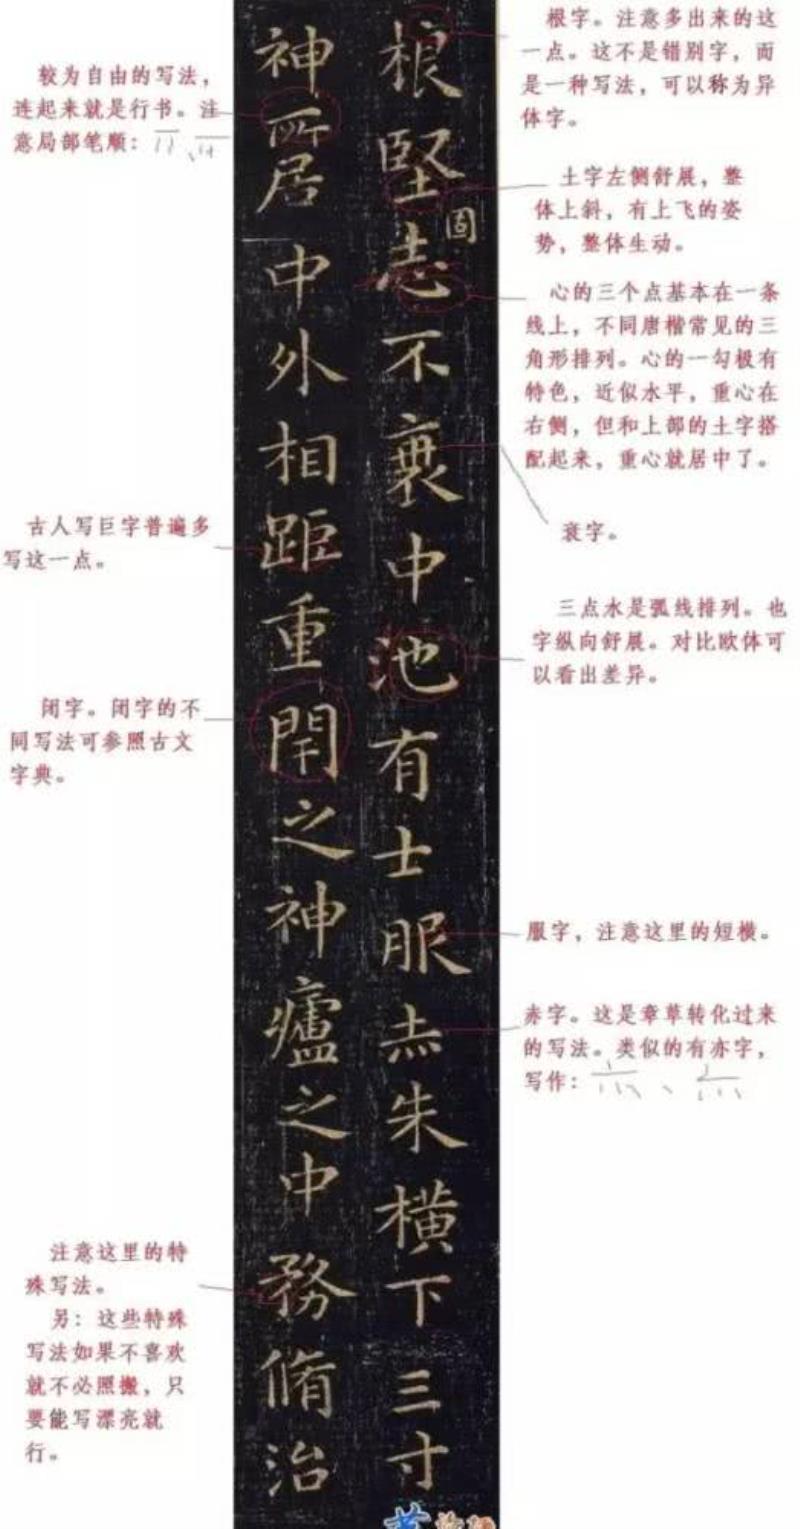 根堅志不衰中池有士服赤朱橫下三寸
固
神所居中外相距重閇之神廬之中務脩治
根字。注意多出来的这
一点。这不是错别字，而
是一种写法，可以称为异
体字。
土字左侧舒展，整
体上斜，有上飞的姿
势，整体生动。
心的三个点基本在一条
线上，不同唐楷常见的三
角形排列。心的一勾极有
特色，近似水平，重心在
右侧，但和上部的土字搭
配起来，重心就居中了。
衰字。
三点水是弧线排列。也
字纵向舒展。对比欧体可
以看出差异。
服字，注意这里的短横。
赤字。这是章草转化过来
的写法。类似的有亦字，
写作：
较为自由的写法，
连起来就是行书。注
意局部笔顺：
古人写巨字普遍多
写这一点。
闭字。闭字的不
同写法可参照古文
字典。
注意这里的特
殊写法。
另：这些特殊
写法如果不喜欢
就不必照搬，只
要能写漂亮就
行。